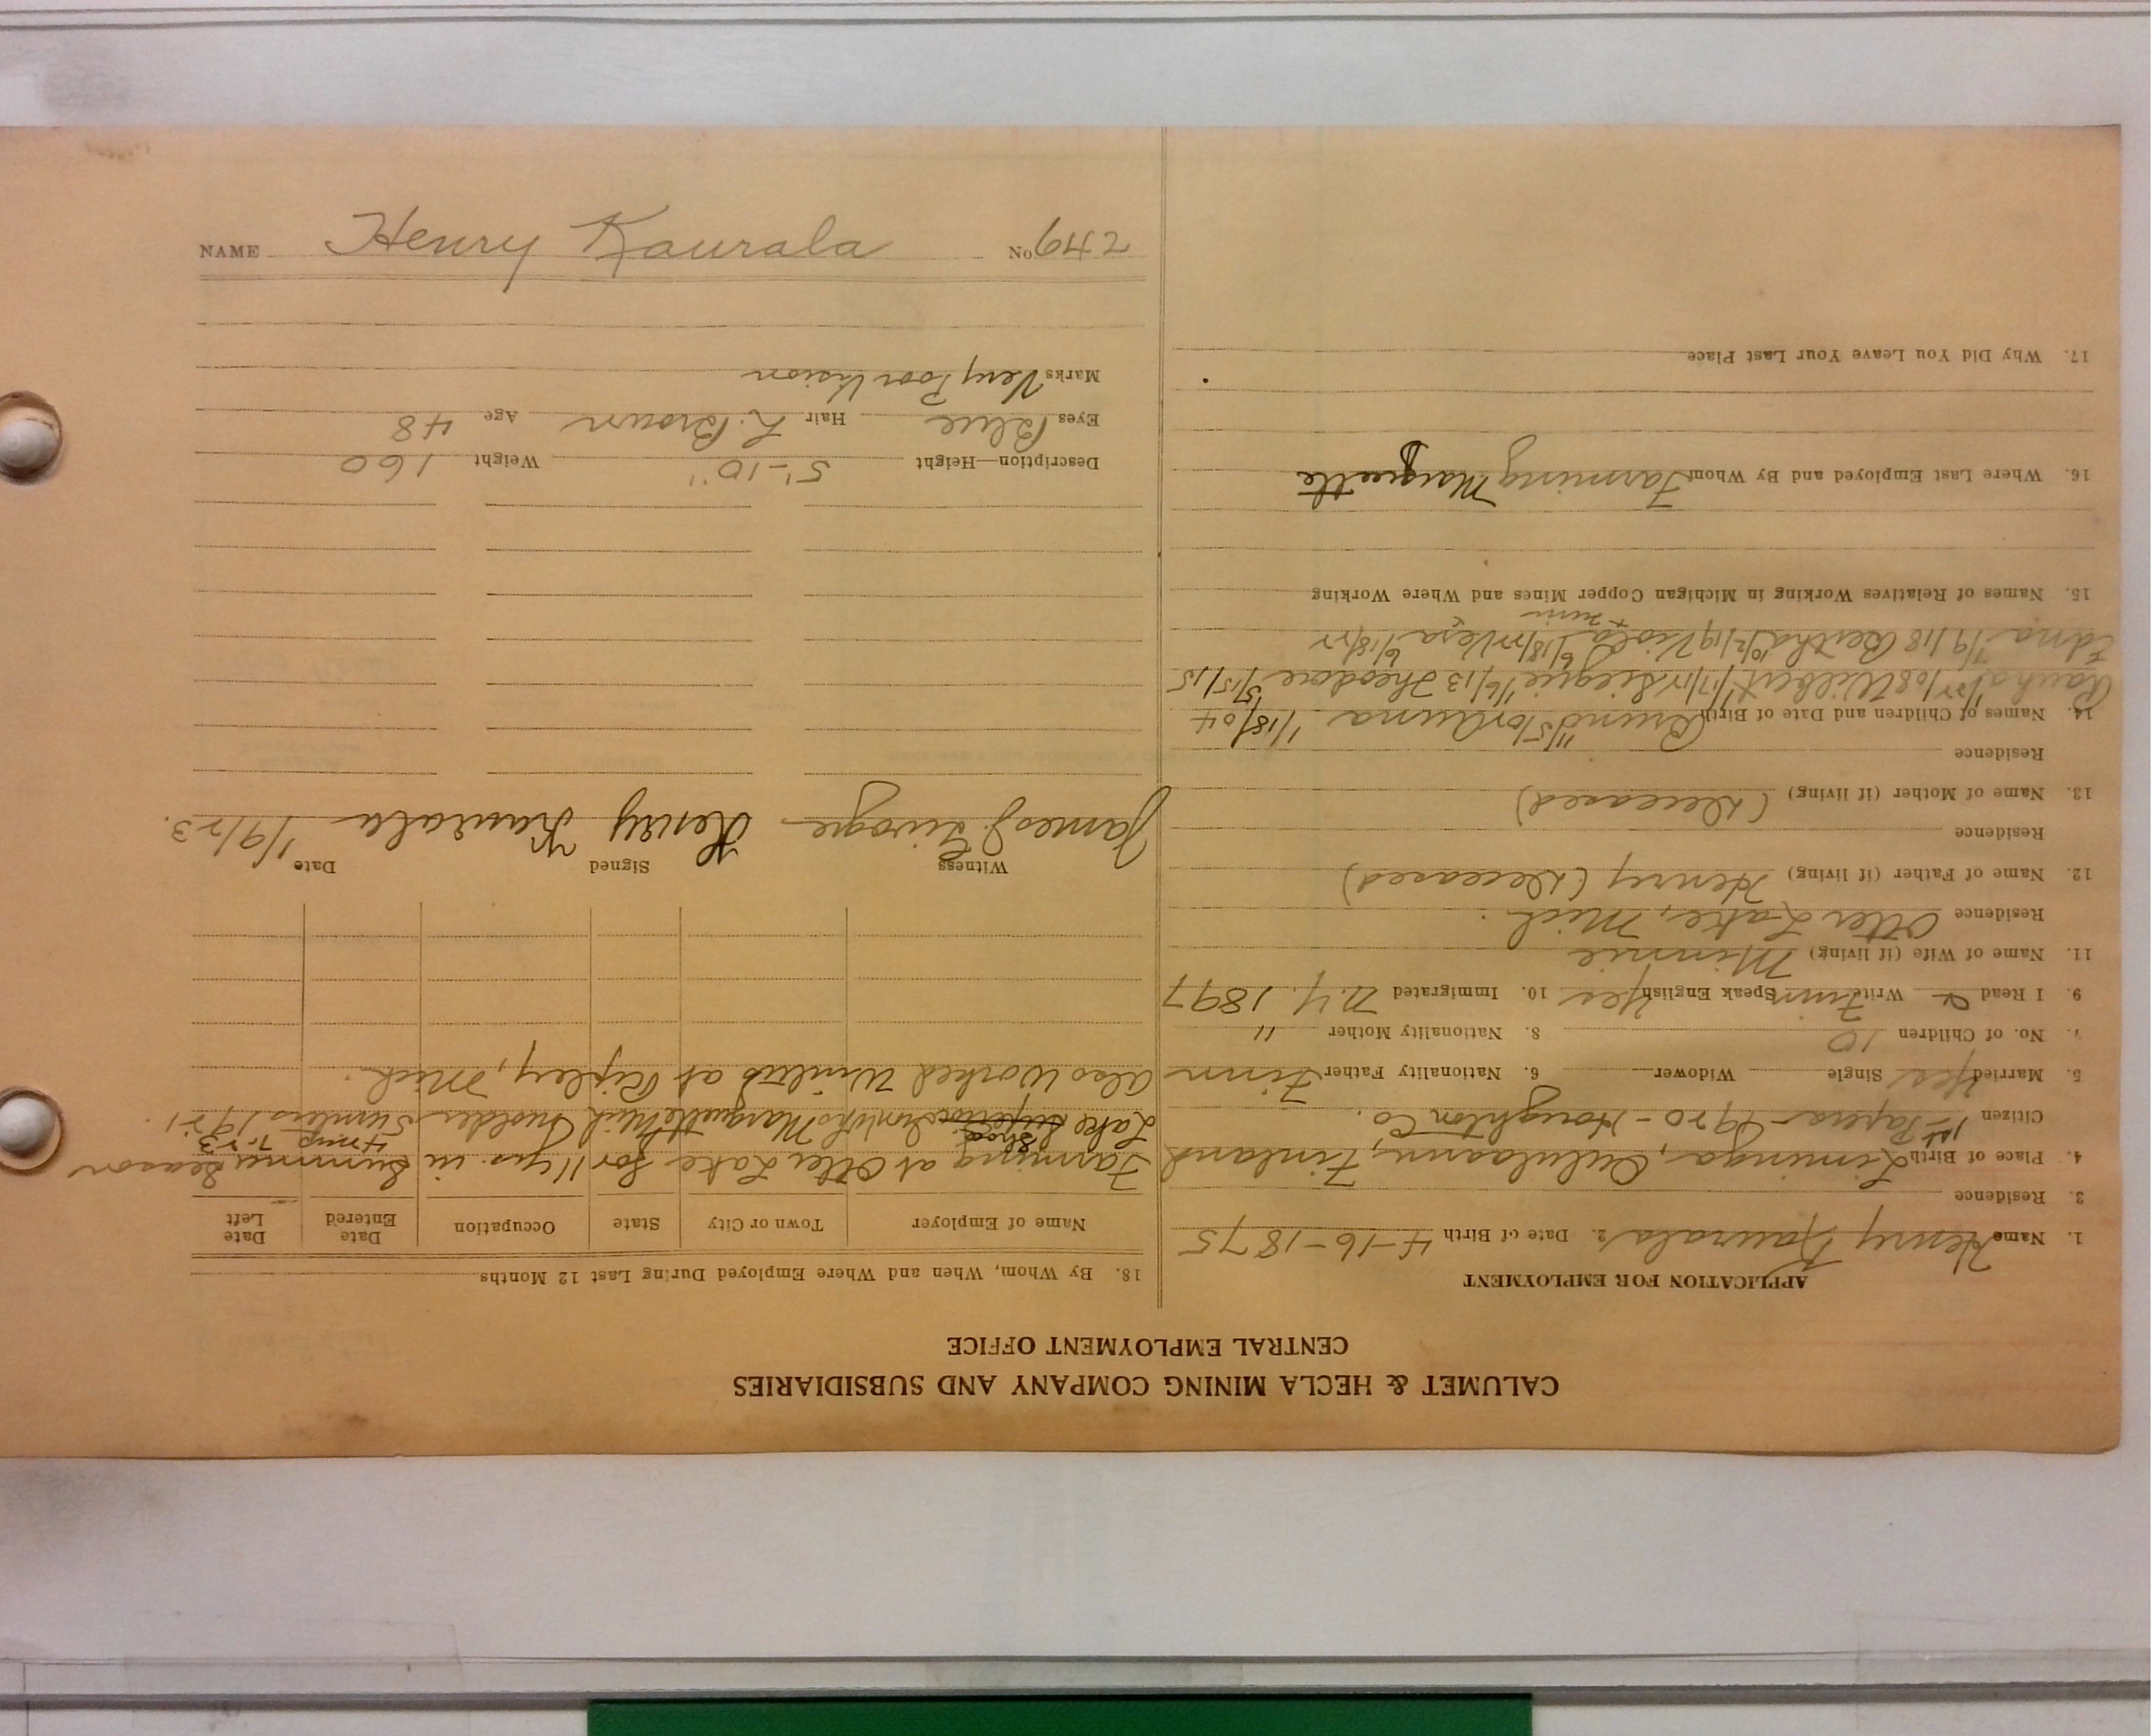 CALUMET & HECLA MINING COMPANY AND SUBSIDIARIES
CENTRAL EMPLOYMENT OFFICE
APPLICATION FOR EMPLOYMENT
1. Name Henry Kaurala 2. Date of Birth 4-16-1875
3. Residence
4. Place of Birth Liminga, Finland
Citizen 1st Papers - 1920 - Houghton Co.
5. Married Yes Single Widower 6. Nationality Father Finn
7. No. of Children 10 8. Nationality Mother "
9. I Read & Write Finn Speak English Yes 10. Immigrated N.Y. 1897
11. Name of Wife (if living) Minnie
Residence Otter Lake, Mich.
12. Name of Father (if living) Henry (Deceased)
Residence
13. Name of Mother (if living) (Deceased)
Residence
14. Names of Children and Date of Birth Anna 1/18/04
1/22/08 Wilbert 1/6/13 Theodore 5/15/15
Edna 7/9/18 Bertha 10/2/19 Viola 6/18/22 Vera 6/18/22
15. Names of Relatives Working in Michigan Copper Mines and Where Working
16. Where Last Employed and By Whom Farming Marquette
17. Why Did You Leave Your Last Place
18. By Whom, When and Where Employed During Last 12 Months
Name of Employer Town or City State Occupation Date Entered Date Left
Farming at Otter Lake for 11 yrs in Summer Season
Lake Marquette Mich 1921
also Worked Winters at Ripley, Mich.
Witness Signed Date
James J. Henry Kaurala 1/9/23.
Description—Height 5'-10" Weight 160
Eyes Blue Hair L. Brown Age 48
Marks Very Poor Vision
NAME Henry Kaurala No. 2449